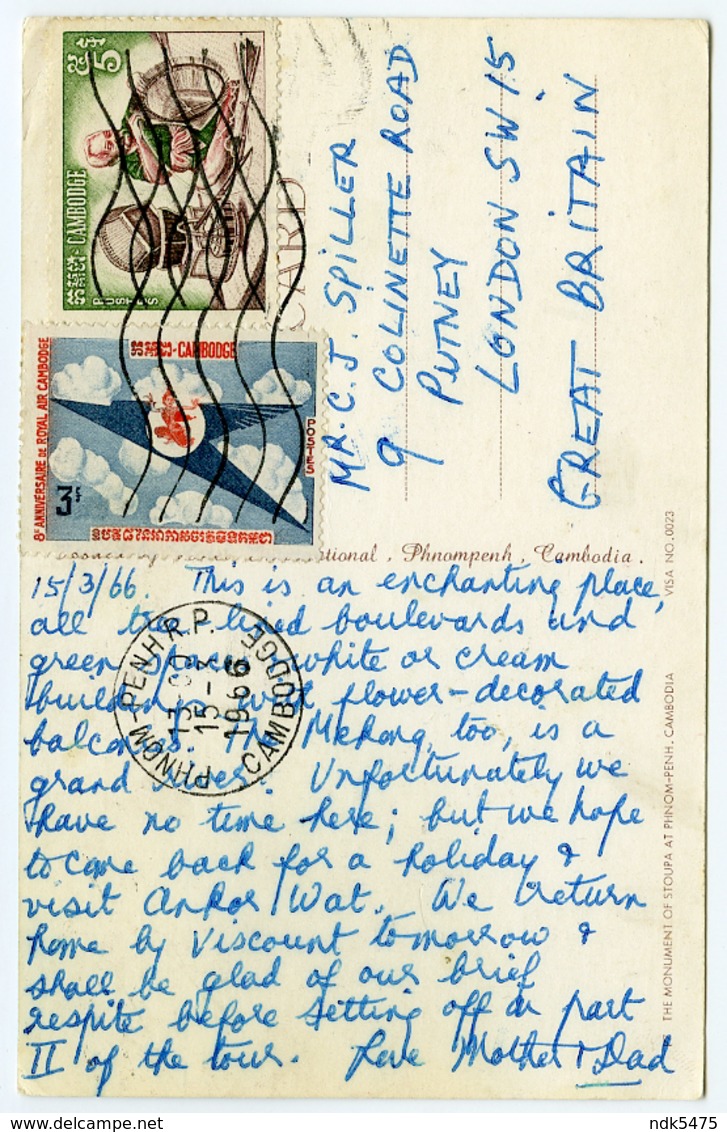 5
CAMBODGE
POSTES
8e ANNIVERSAIRE DE ROYAL AIR CAMBODGE
CAMBODGE
POSTES
3
CARD
MR. C. J. SPILLER
9 COLINETTE ROAD
PUTNEY
LONDON SW15
GREAT BRITAIN
VISA NO. 0023
THE MONUMENT OF STOUPA AT PHNOM-PENH, CAMBODIA
Phnompenh, Cambodia.
15/3/66. This is an enchanting place,
all tree lined boulevards and
green spaces, white or cream
buildings with flower-decorated
balconies. The Mekong, too, is a
grand river. Unfortunately we
have no time here; but we hope
to come back for a holiday &
visit Ankor Wat. We return
home by Viscount tomorrow &
shall be glad of our brief
respite before setting off on part
II of the tour. Love Mother & Dad
PHNOM-PENH R.P.
15-3
1966
CAMBODGE
ndk5475